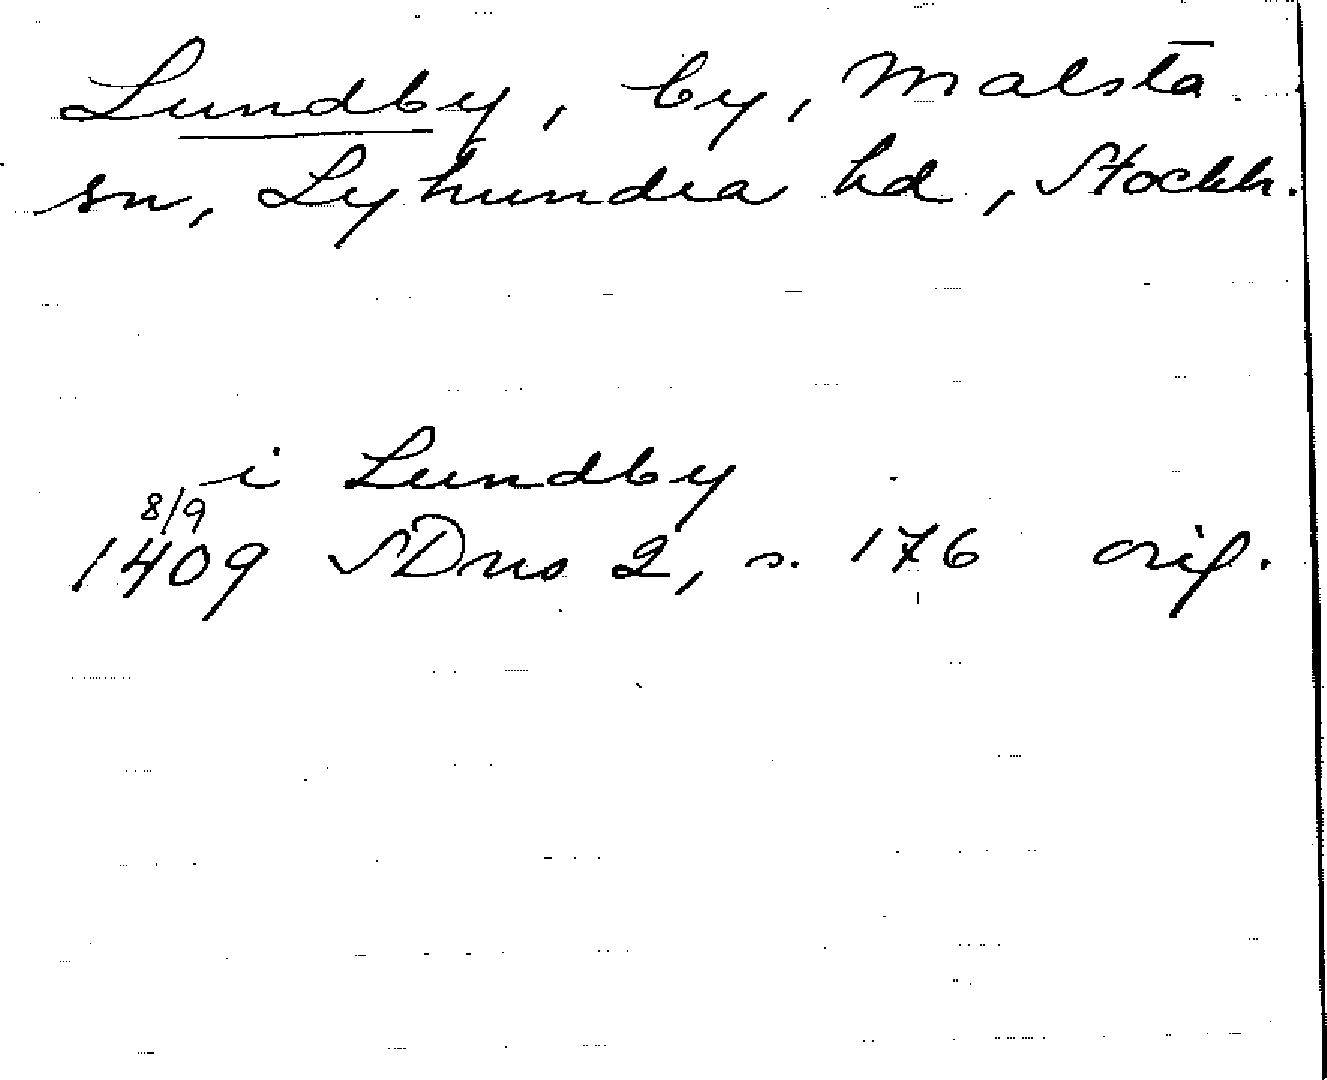 Lundby, by, Malsta
sn, Lyhundra hd, Stockh.
i Lundby
8/9
1409 SDns 2, s. 176 orig.